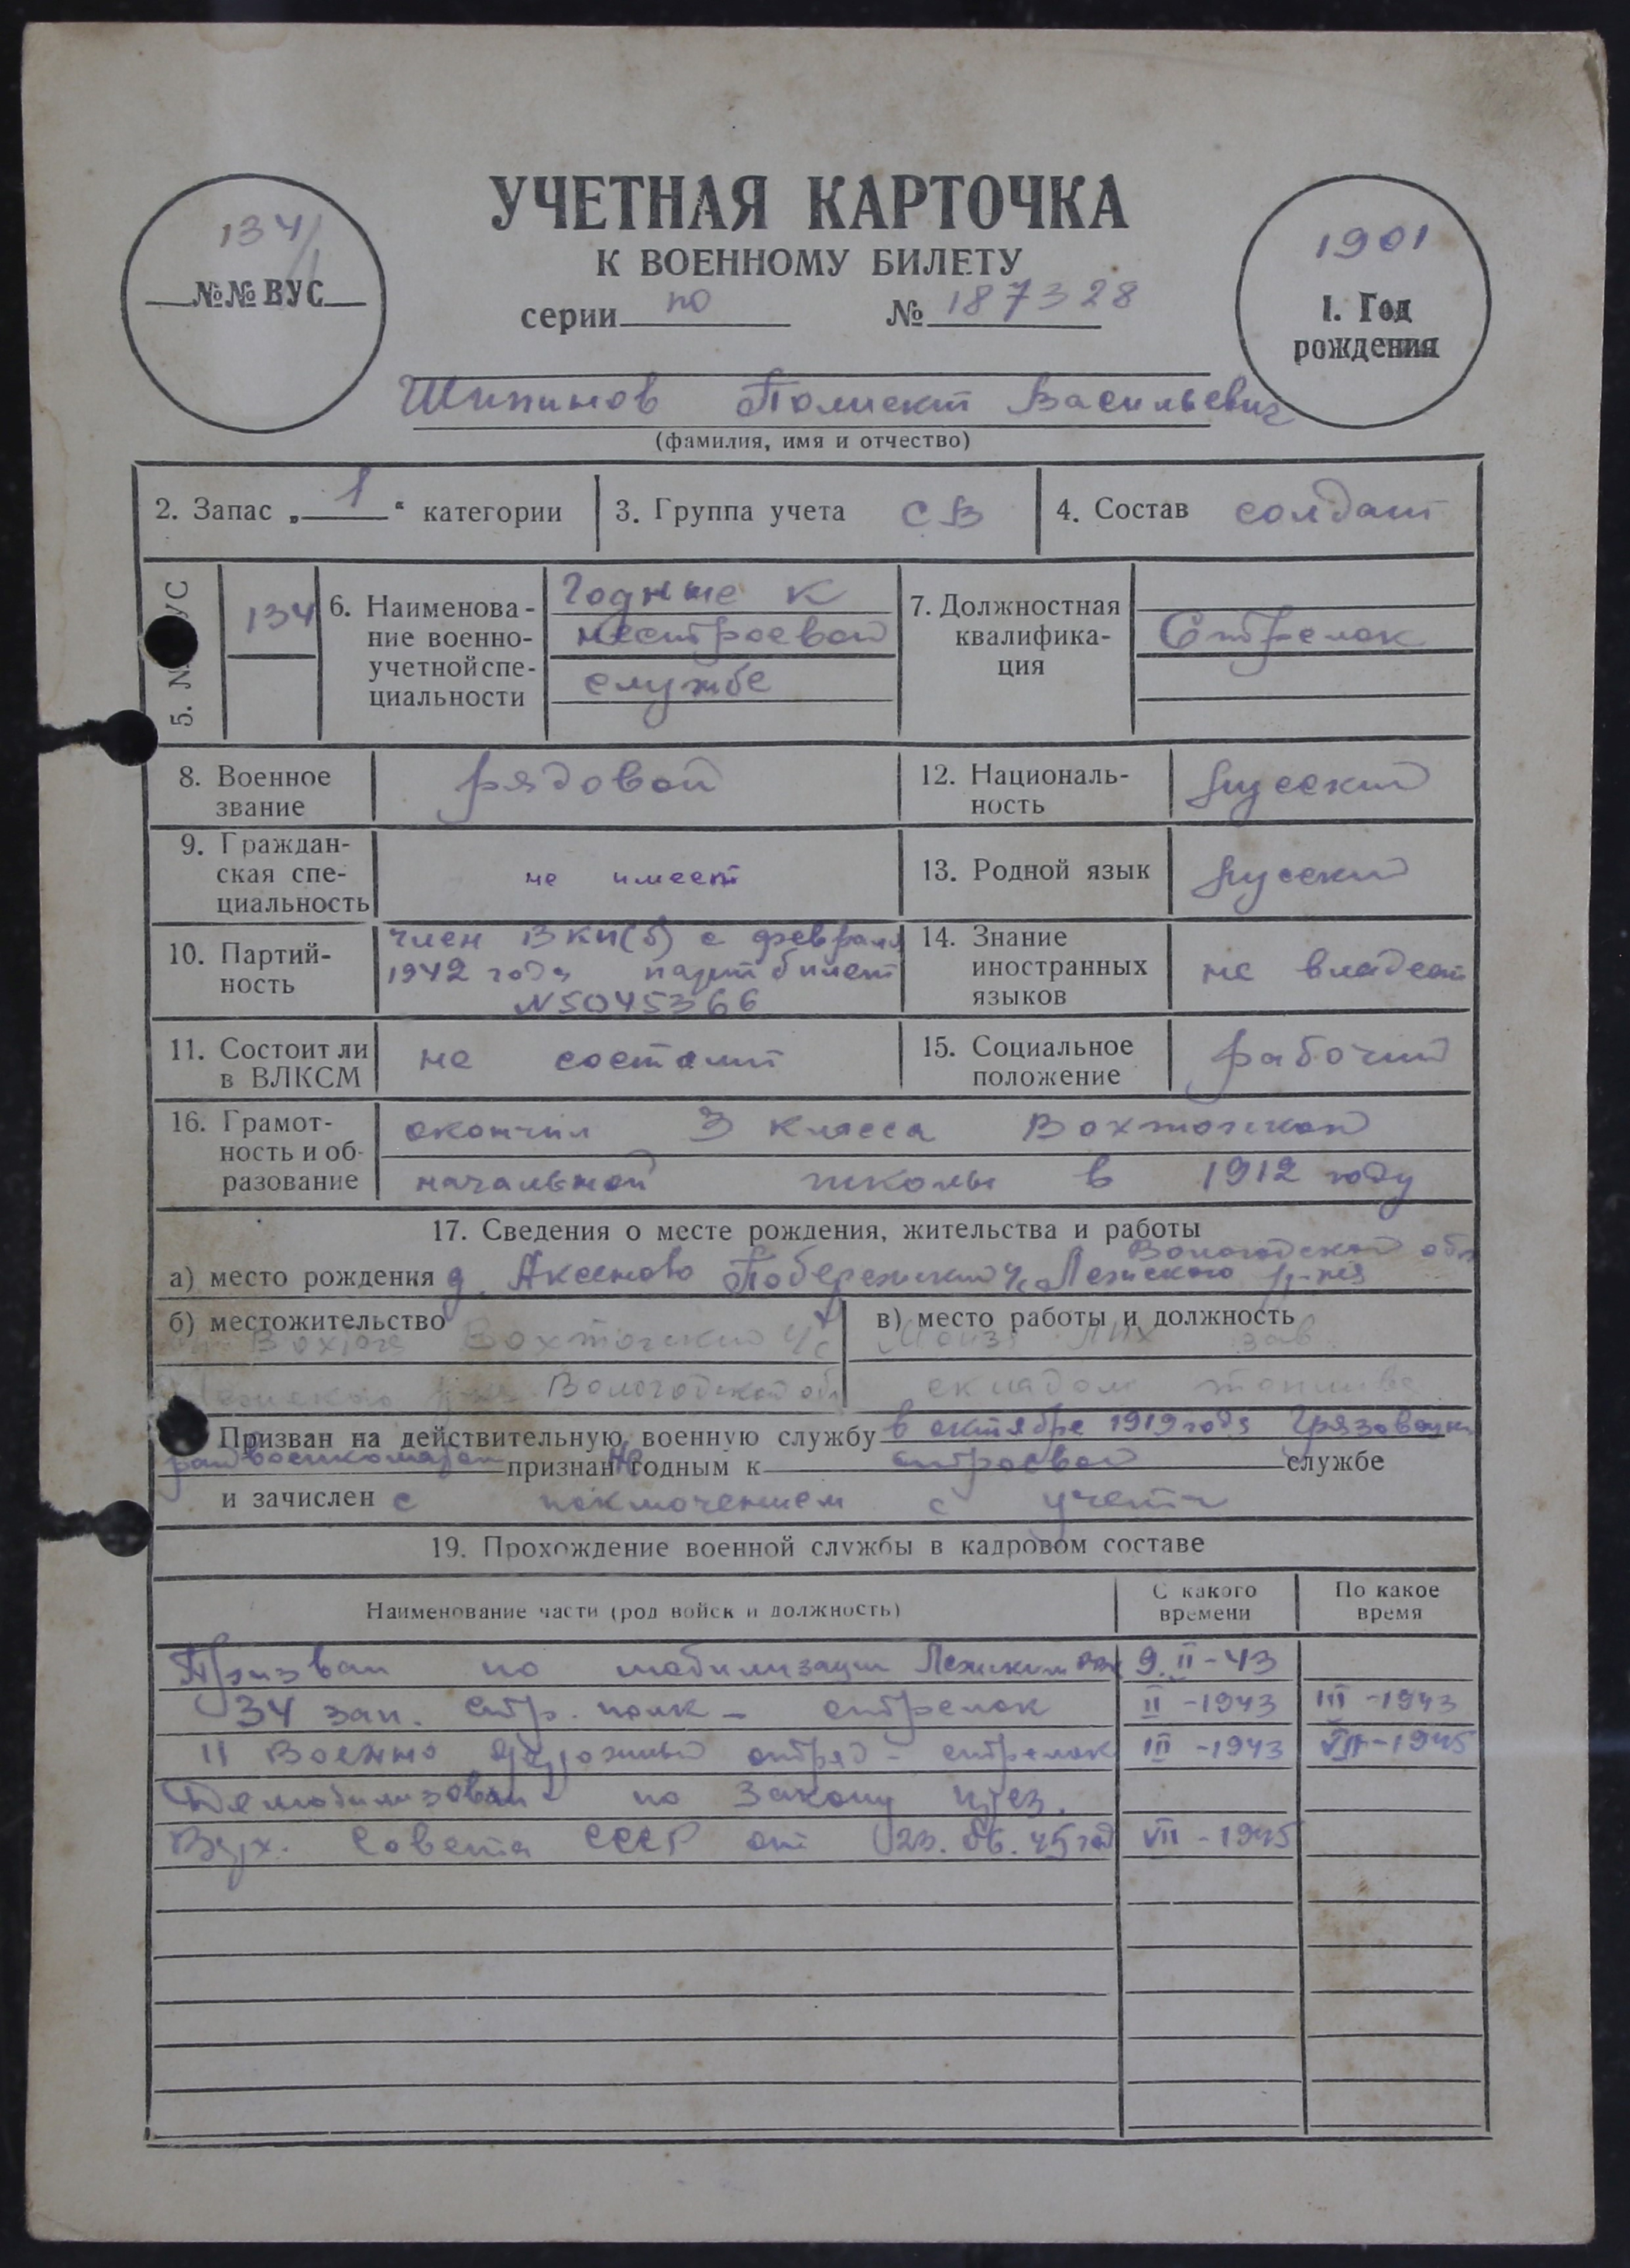 УЧЕТНАЯ КАРТОЧКА
К ВОЕННОМУ БИЛЕТУ
серии по № 187328
134/1
№№ ВУС
1901
1. Год
рождения
Шипинов Полиект Васильевич
(фамилия, имя и отчество)
2. Запас „1“ категории
3. Группа учета СВ
4. Состав солдат
5. № ВУС 134
6. Наименова-
ние военно-
учетной спе-
циальности
Годные к
нестроевой
службе
7. Должностная
квалифика-
ция
Стрелок
8. Военное
звание
рядовой
12. Националь-
ность
русский
9. Граждан-
ская спе-
циальность
не имеет
13. Родной язык русский
10. Партий-
ность
член ВКП(б) с февраля
1942 года партбилет
№5045366
14. Знание
иностранных
языков
не владеет
11. Состоит ли
в ВЛКСМ
не состоит
15. Социальное
положение
рабочий
16. Грамот-
ность и об-
разование
окончил 3 класса Вохтожской
начальной школы в 1912 году
17. Сведения о месте рождения, жительства и работы
Вологодской обл
а) место рождения д. Аксеново Побережский с/с Лежского р-на
б) местожительство
Вохтога Вохтожский с/с
Лежского р-на Вологодской обл
в) место работы и должность
ЛПХ зав.
складом топлива
Призван на действительную военную службу в октябре 1919 года Грязовецким
райвоенкоматом признан не годным к строевой службе
и зачислен с исключением с учета
19. Прохождение военной службы в кадровом составе
Наименование части (род войск и должность)
С какого
времени
По какое
время
Призван по мобилизации Лежским РВК 9.II-43
34 зап. стр. полк - стрелок II-1943 III-1943
11 Военно дорожный отряд - стрелок III-1943 VII-1945
Демобилизован по Закону през.
Верх. Совета СССР от 23.06.45 год VII-1945